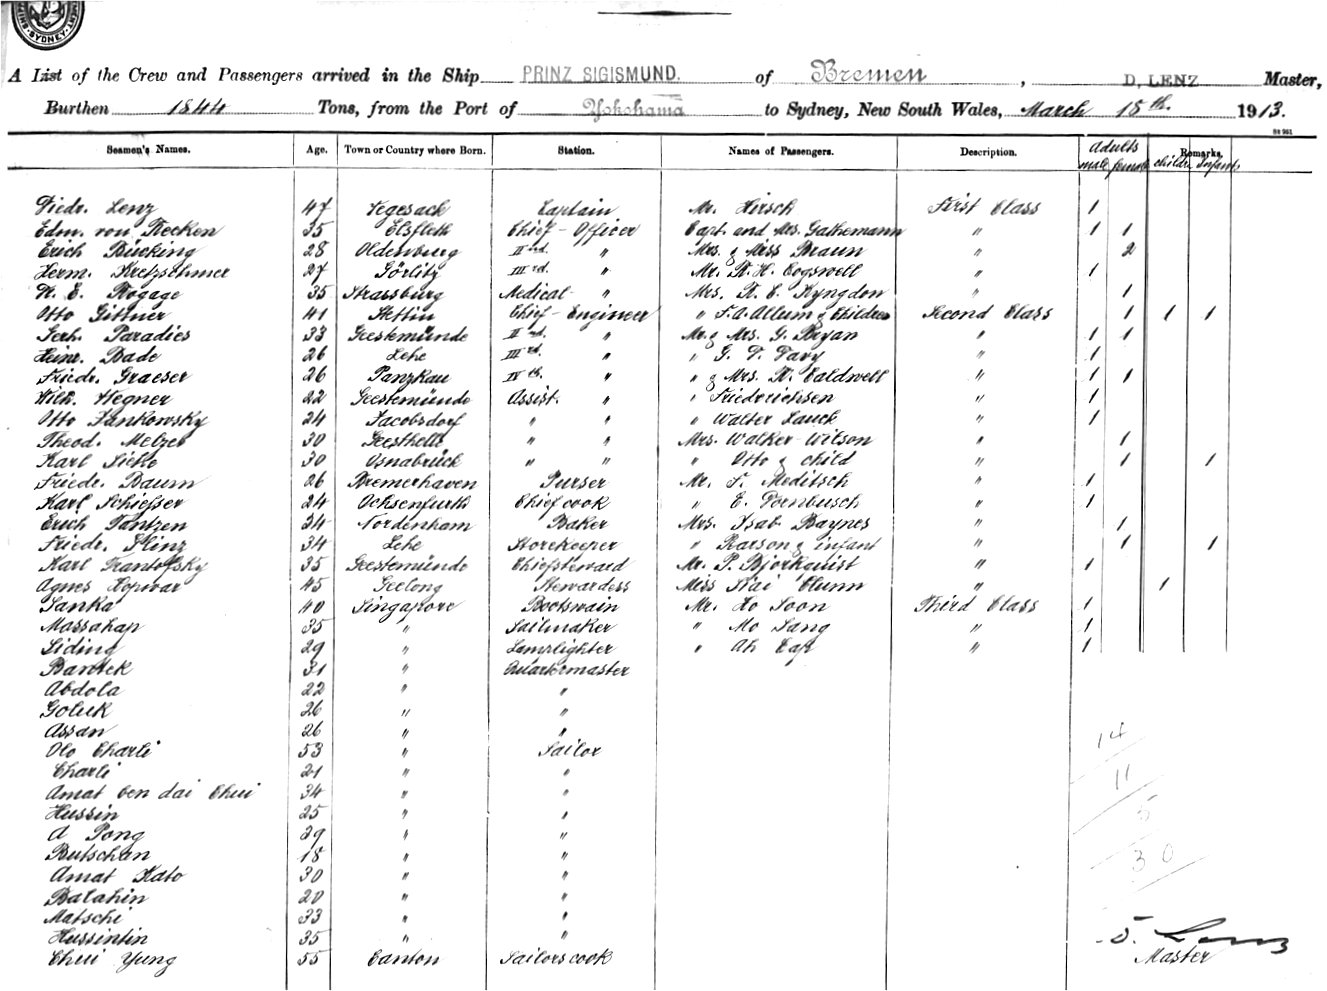 SYDNEY
A List of the Crew and Passengers arrived in the Ship PRINZ SIGISMUND. of Bremen, D. LENZ Master,
Burthen 1844 Tons, from the Port of Yokohama to Sydney, New South Wales, March 15th. 1913.
St 961
Seamen's Names. Age. Town or Country where Born. Station. Names of Passengers. Description. Remarks.
Adults
male female childr. Infants
Diedr. Lenz 47 Vegesack Captain Mr. Hirsch First Class 1
Edm. von Recken 35 Elsfleth Chief-Officer Capt. and Mrs. Gathemann " 1 1
Erich Bücking 28 Oldenburg IInd. " Mrs. & Miss Braun " 2
Herm. Kretzschmer 27 Görlitz IIIrd. " Mr. R. H. Cogswell " 1
W. E. Rogage 35 Strassburg Medical " Mrs. R. E. Kyngdon " 1
Otto Gittner 41 Stettin Chief-Engineer " F. A. Allum & Children Second Class 1 1 1
Gerh. Paradies 33 Geestemünde IInd. " Mr. & Mrs. G. Bryan " 1 1
Heinr. Bade 26 Lehe IIIrd. " " G. T. Davy " 1
Friedr. Graeser 26 Panzkau IVth. " " & Mrs. R. Caldwell " 1 1
Wilh. Hegner 22 Geestemünde Assist. " " Friedrichsen " 1
Otto Jankowsky 24 Jacobsdorf " " " Walter Lauck " 1
Theod. Melzer 30 Geesthelle " " Mrs. Walker-Wilson " 1
Karl Sieke 30 Osnabrück " " " Otto & child " 1 1
Friedr. Baum 26 Bremerhaven Purser Mr. F. Meditsch " 1
Karl Schiesser 24 Ochsenfurth Chief cook " E. Dornbusch " 1
Erich Tantzen 34 Nordenham Baker Mrs. Isab. Baynes " 1
Friedr. Plinz 34 Lehe Storekeeper " Karson & infant " 1 1
Karl Trantofsky 35 Geestemünde Chiefsteward Mr. P. Bjorkquist " 1
Agnes Hopwar 45 Geelong Stewardess Miss Nai Clunn " 1
Sanka 40 Singapore Bootswain Mr. Ho Soon Third Class 1
Massahap 35 " Sailmaker " Mo Sang " 1
Siding 29 " Lamplighter " Ah Eap " 1
Bantek 31 " Quartermaster
Abdola 22 " "
Goluk 26 " "
Assan 26 " "
Olo Charli 53 " Sailor
Charli 21 " "
Amat ben dai Chui 34 " "
Hussin 25 " "
A Pong 29 " "
Butschan 18 " "
Amat Kato 30 " "
Batahin 20 " "
Matschi 33 " "
Hussintin 35 " "
Chui Yung 55 Canton Sailors cook
14
11
5
30
D. Lenz
Master